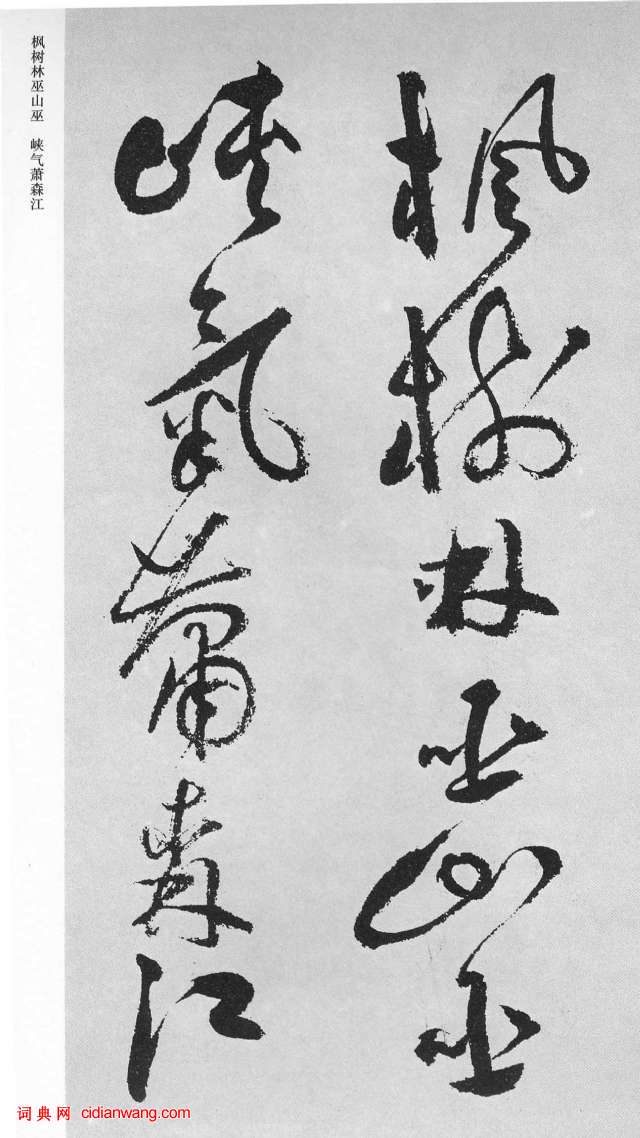 枫树林巫山巫
峡气萧森江
枫树林巫山巫 峡气萧森江
词典网 cidianwang.com